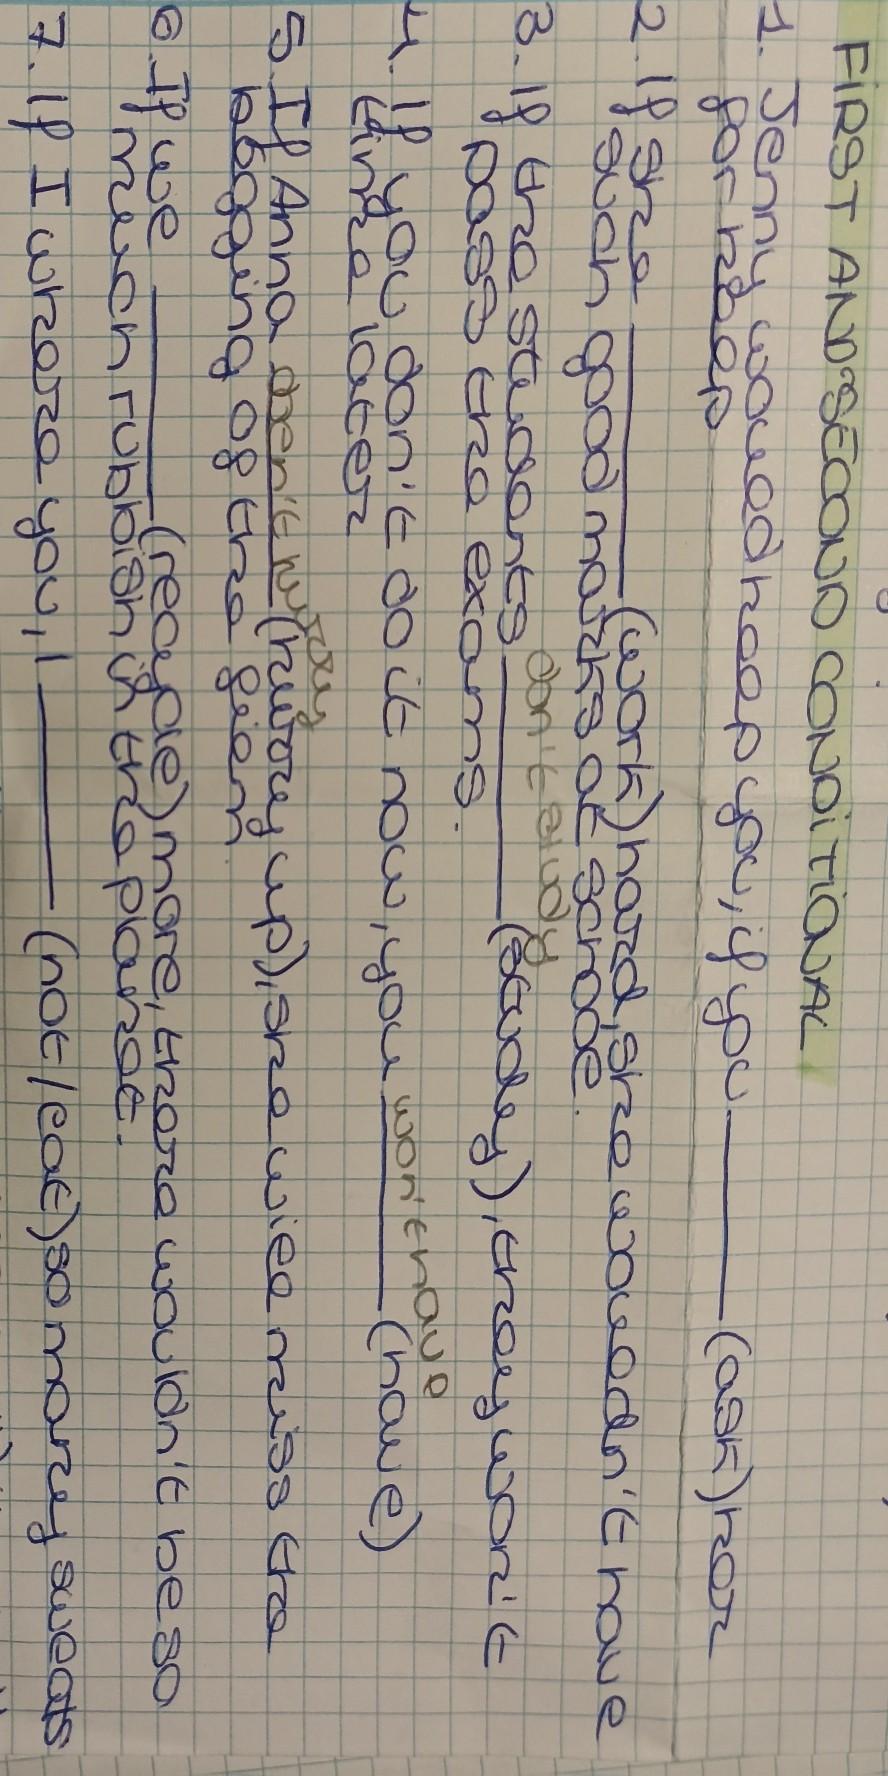 FIRST AND SECOND CONDITIONAL
1. Jenny would help you, if you ______ (ask) her
for help
2. If she ______ (work) hard, she wouldn't have
such good marks at school.
don't study
3. If the students ______ (study), they won't
pass the exams.
won't have
4. If you don't do it now, you ______ (have)
time later
5. If Anna doen't hurry (hurry up), she will miss the
begging of the film.
6. If we ______ (recycle) more, there wouldn't be so
much rubbish in the planet.
7. If I where you, I ______ (not/eat) so many sweats